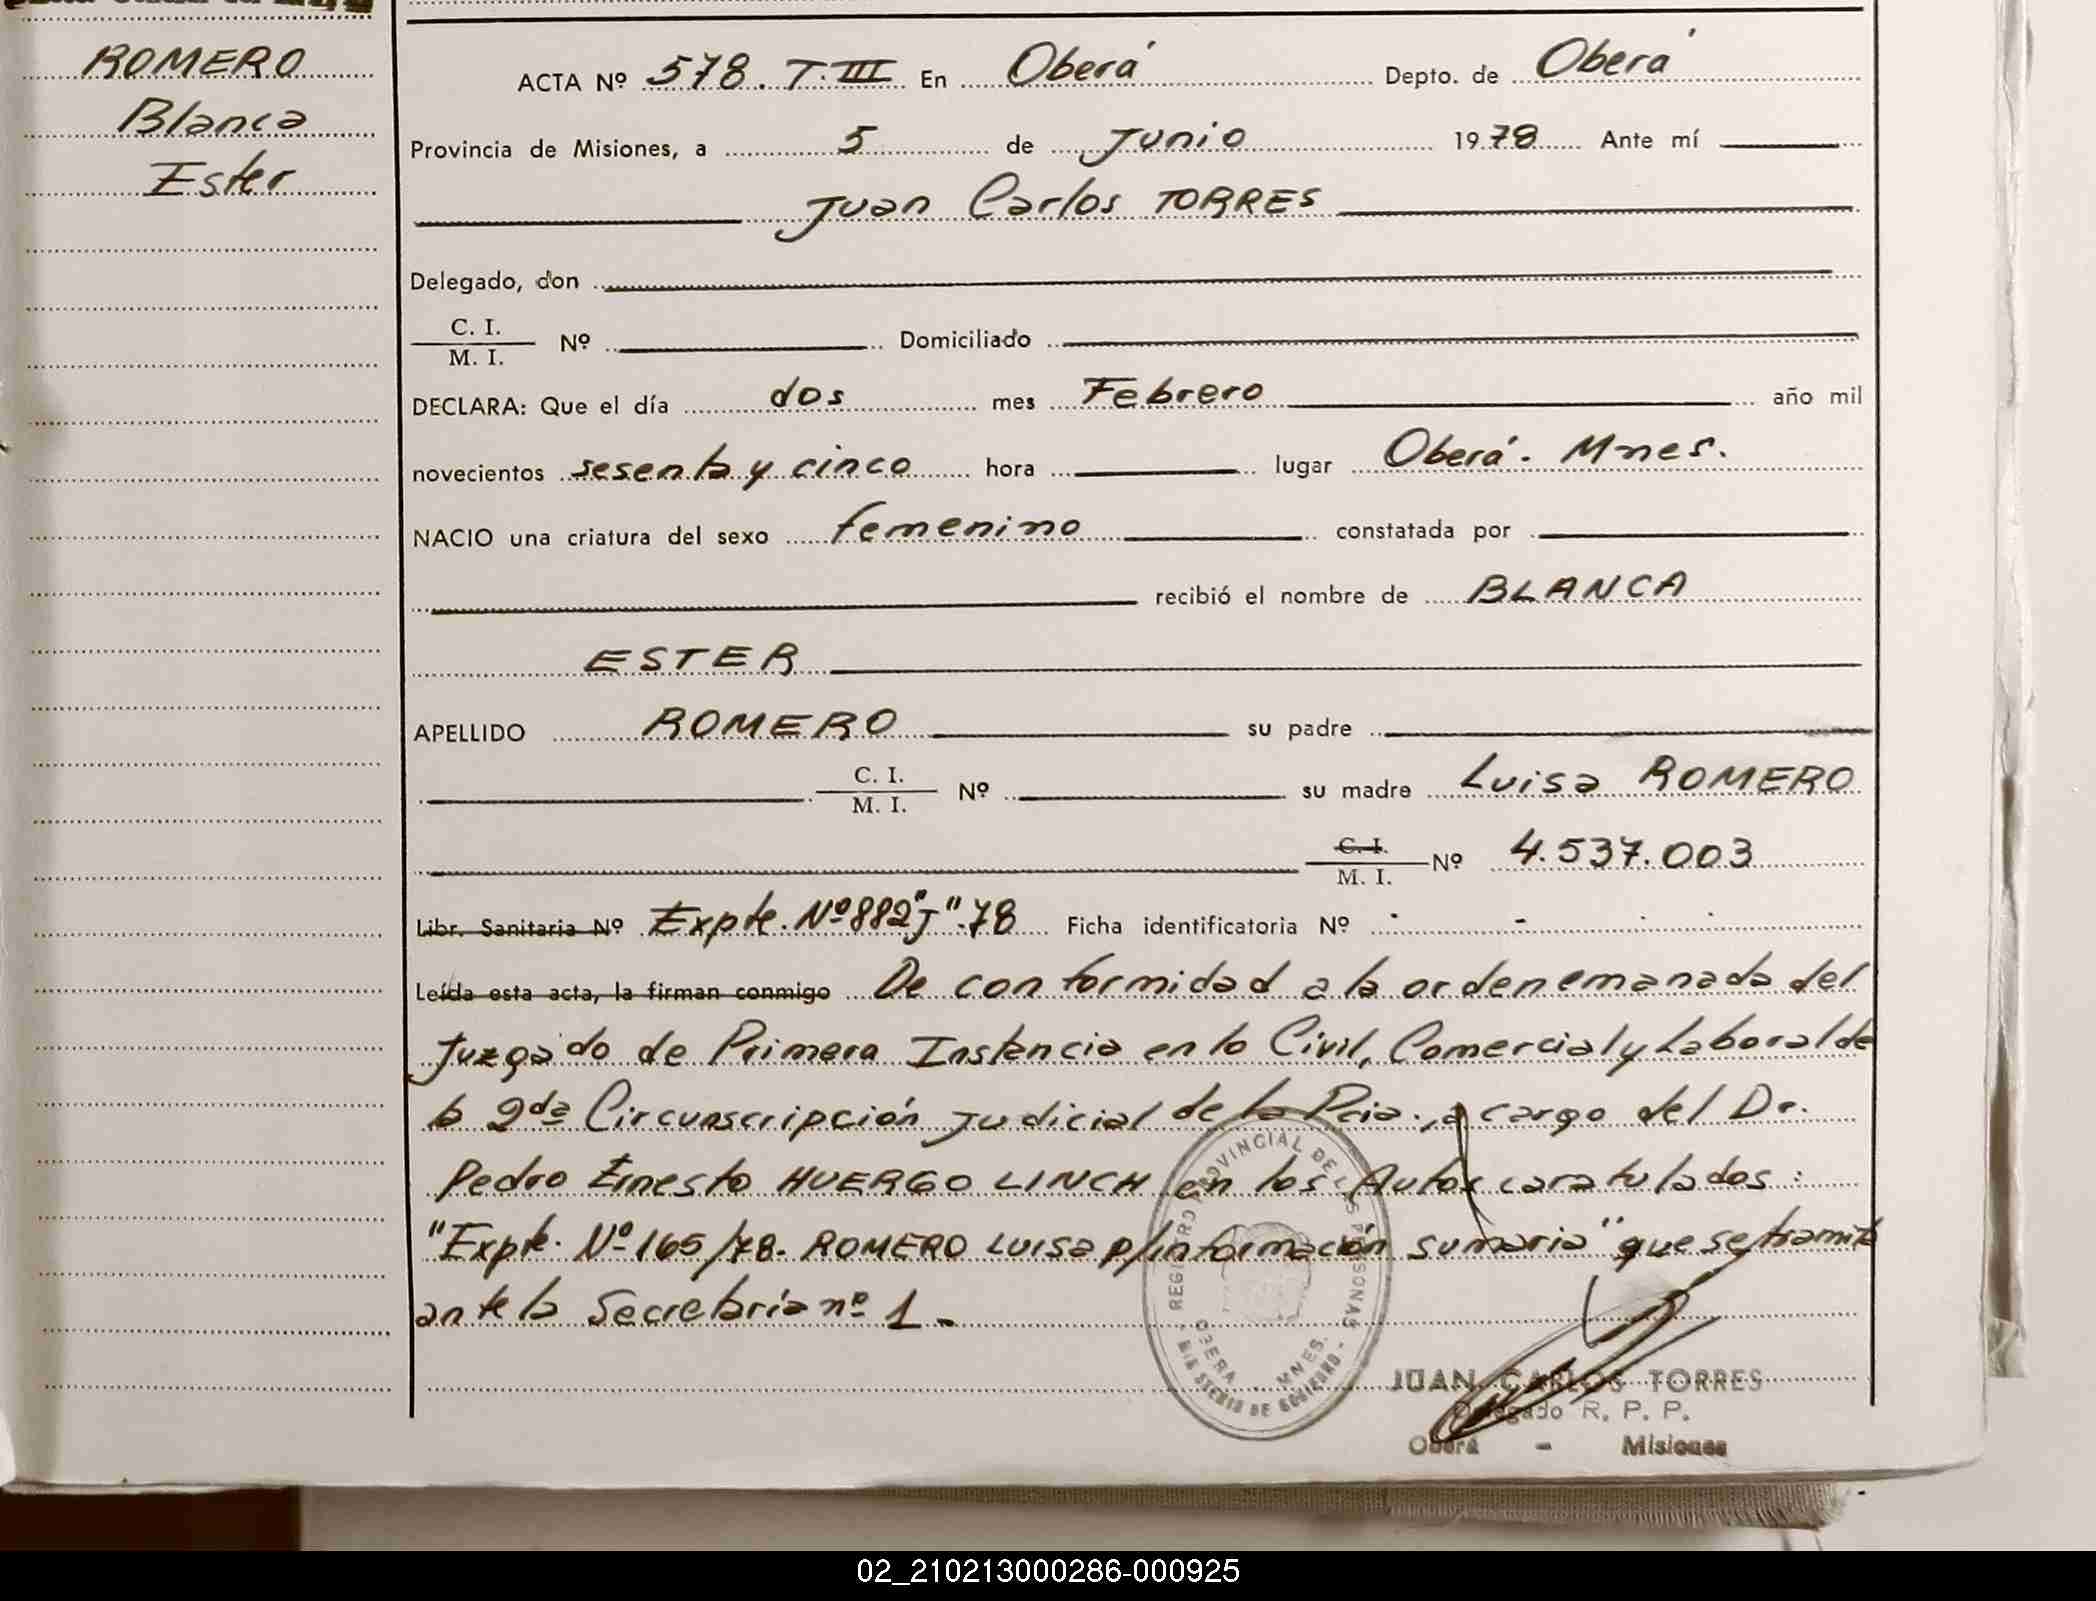 ROMERO
Blanca
Ester
ACTA Nº 578. T. III En Oberá Depto. de Oberá
Provincia de Misiones, a 5 de Junio 1978 Ante mí
Juan Carlos TORRES
Delegado, don
C. I.
M. I. Nº Domiciliado
DECLARA: Que el día dos mes Febrero año mil
novecientos sesenta y cinco hora lugar Oberá. Mnes.
NACIO una criatura del sexo femenino constatada por
recibió el nombre de BLANCA
ESTER
APELLIDO ROMERO su padre
C. I.
M. I. Nº su madre Luisa ROMERO
C. I.
M. I. Nº 4.537.003
Libr. Sanitaria Nº Expte. Nº 882"J".78 Ficha identificatoria Nº - -
Leída esta acta, la firman conmigo De conformidad a la orden emanada del
Juzgado de Primera Instancia en lo Civil, Comercial y Laboral de
la 2da Circunscripción Judicial de la Pcia., a cargo del Dr.
Pedro Ernesto HUERGO LINCH en los Autos caratulados:
"Expte. Nº 165/78. ROMERO LUISA p/información sumaria" que se tramita
ante la Secretaría nº 1.-
REGISTRO PROVINCIAL DE LAS PERSONAS
OBERA - MNES.
MINISTERIO DE GOBIERNO
JUAN CARLOS TORRES
Delegado R. P. P.
Oberá - Misiones
02_210213000286-000925